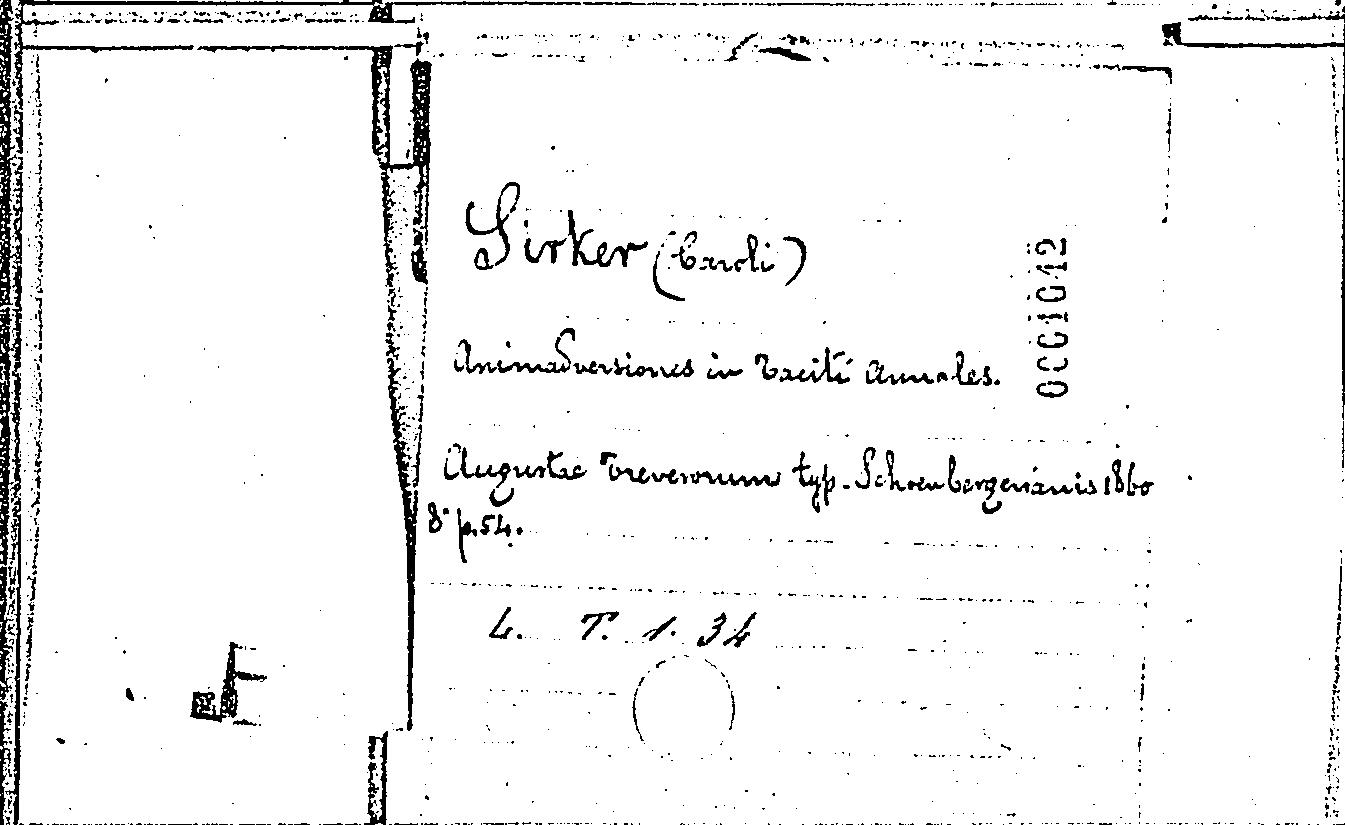 Sirker (Caroli)
0001042
Animadversiones in Taciti Annales.
Augustae Treverorum typ. Schoenbergenianis 1860
8° p. 54.
L. T. 1. 34